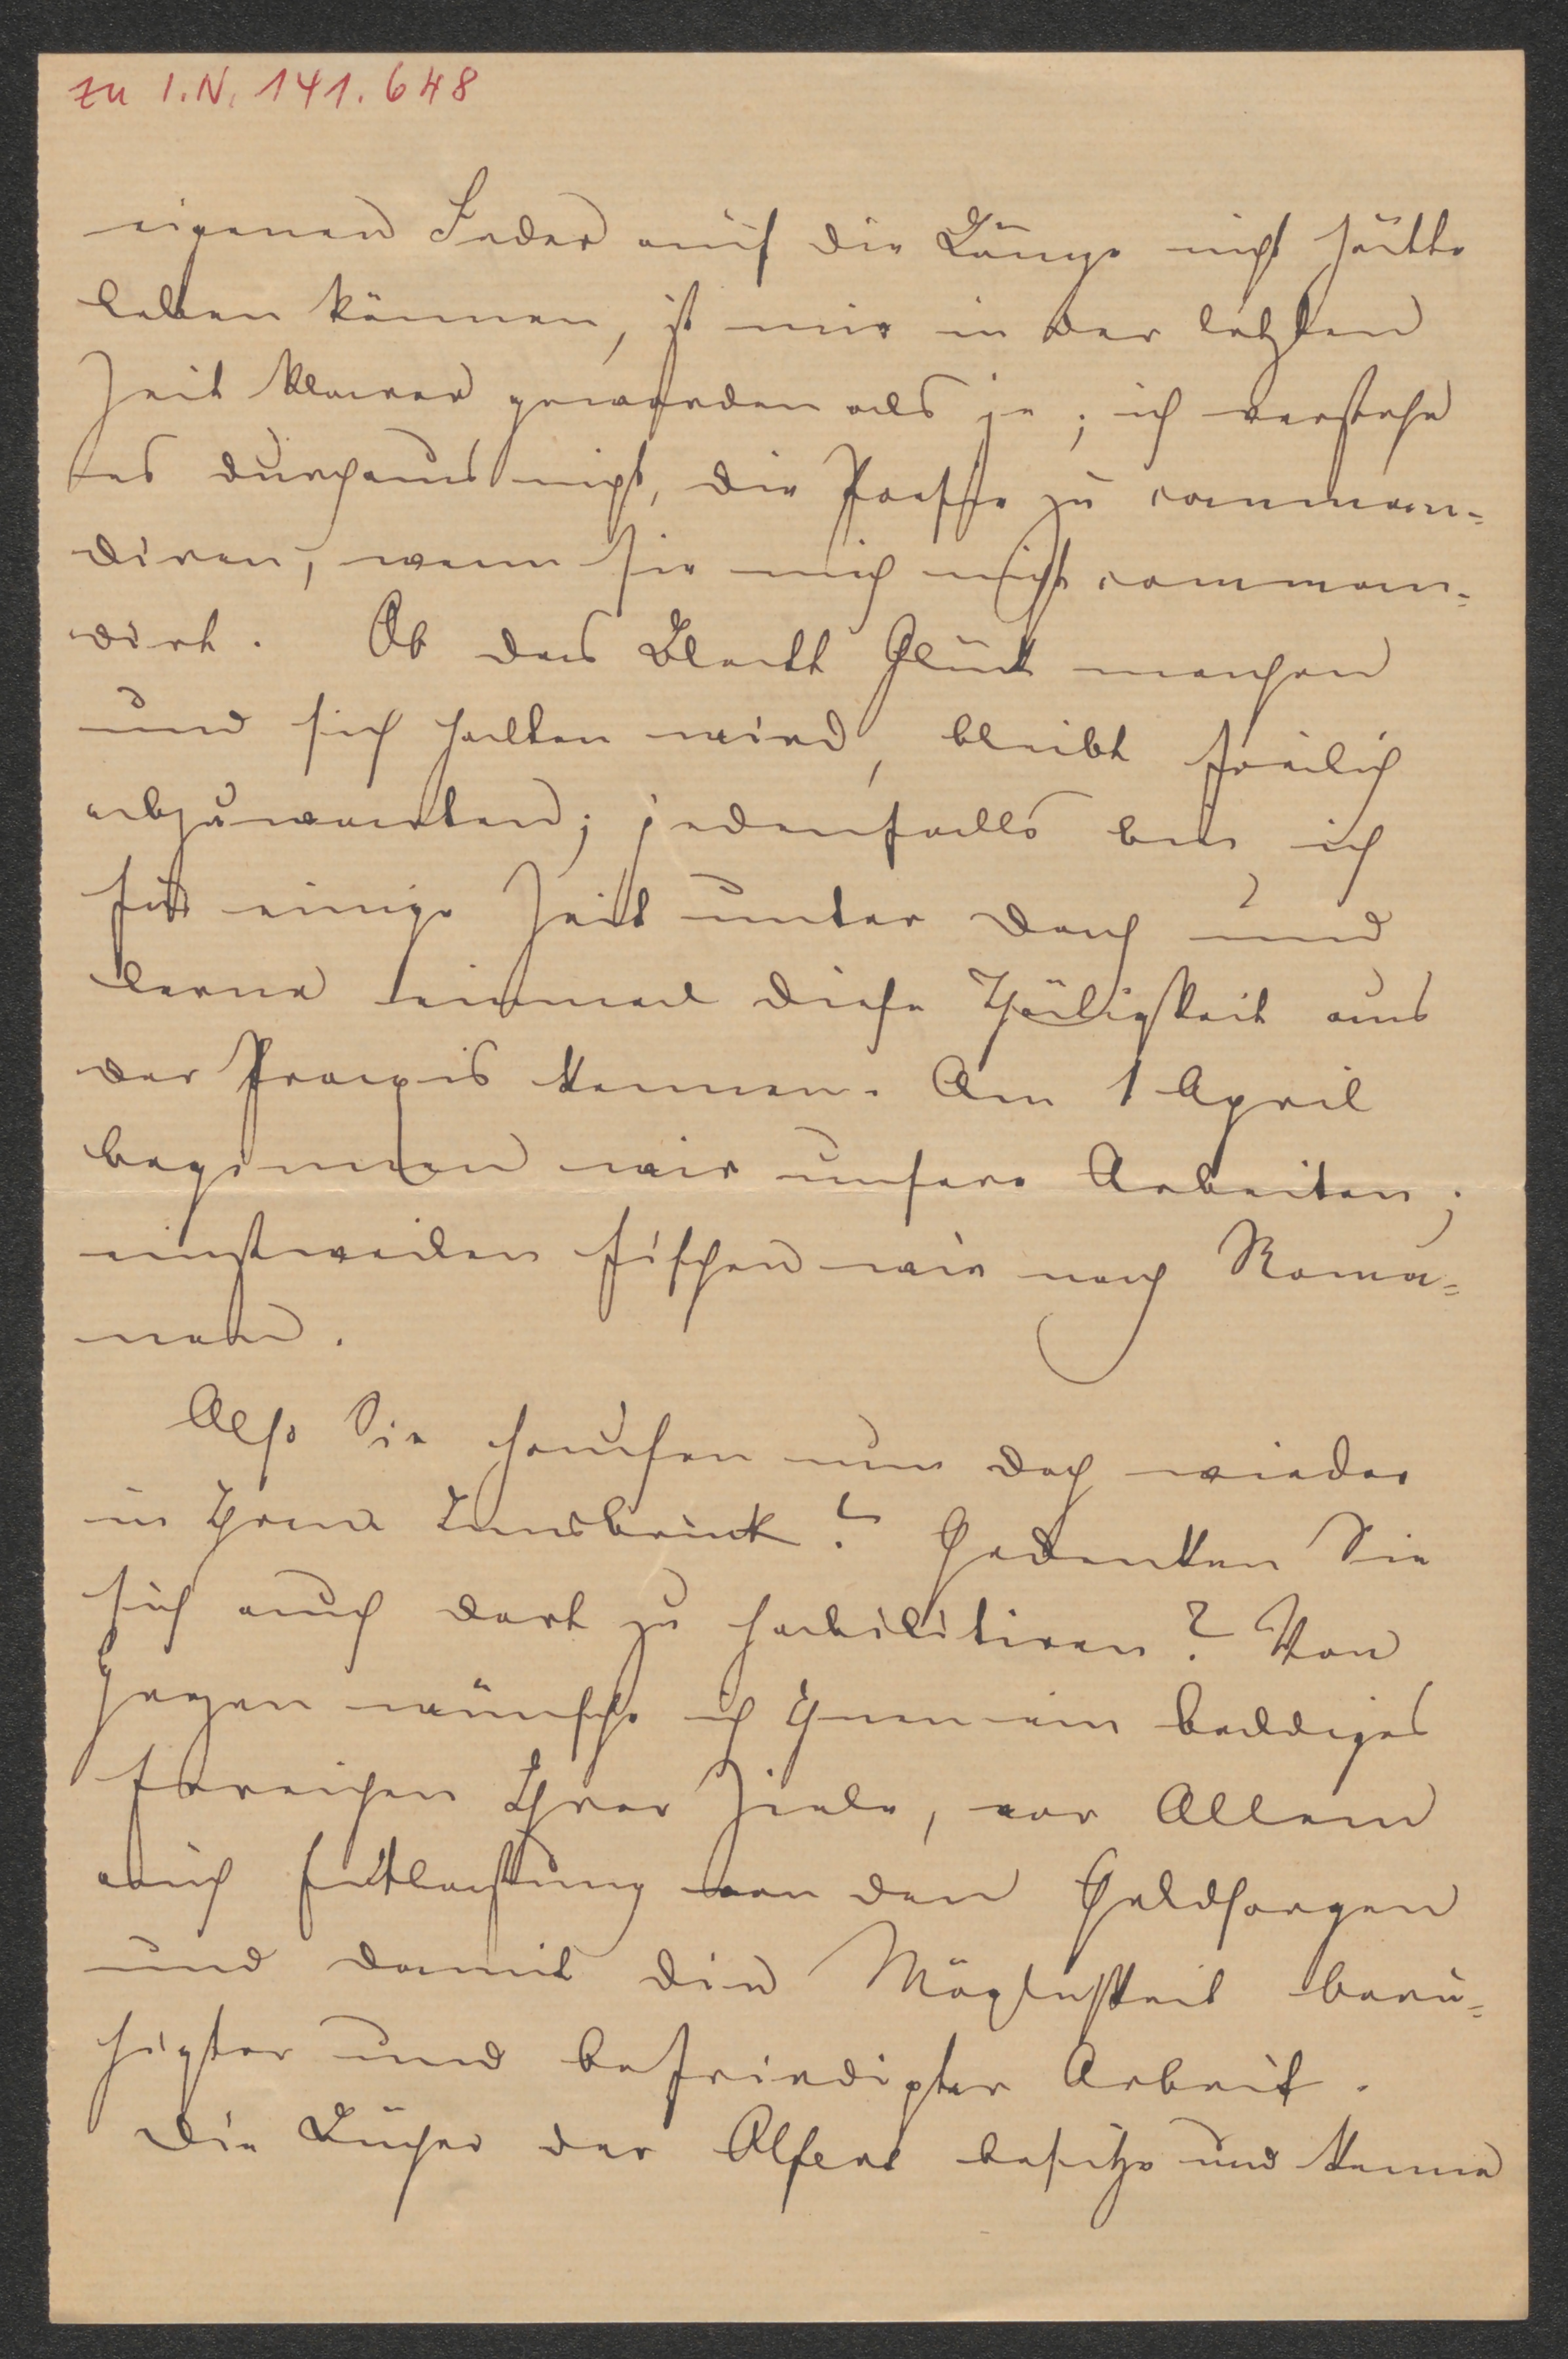 zu I.N. 141.648
eigenen Feder auf die Länge nicht hätte
leben können, ist mir in der letzten
Zeit klarer geworden als je; ich verstehe
es durchaus nicht, die Poesie zu comman-
diren, wenn sie mich nicht comman-
dirt. Ob das Blatt Glück machen
und sich halten wird, bleibt freilich
abzuwarten; jedenfalls bin ich
für einige Zeit unter Dach und
lerne einmal diese Thätigkeit aus
der Praxis kennen. Am 1 April
beginnen wir unsere Arbeiten;
einstweilen fischen wir nach Roma-
nen.
Also Sie hausen nun doch wieder
in Ihrem Innsbruck? Gedenken Sie
sich auch dort zu habilitiren? Von
Herzen wünsche ich Ihnen ein baldiges
Erreichen Ihrer Ziele, vor Allem
auch Entlastung von den Geldsorgen
und damit die Möglichkeit beru-
higter und befriedigter Arbeit.
Die Bücher der besitze und kenne